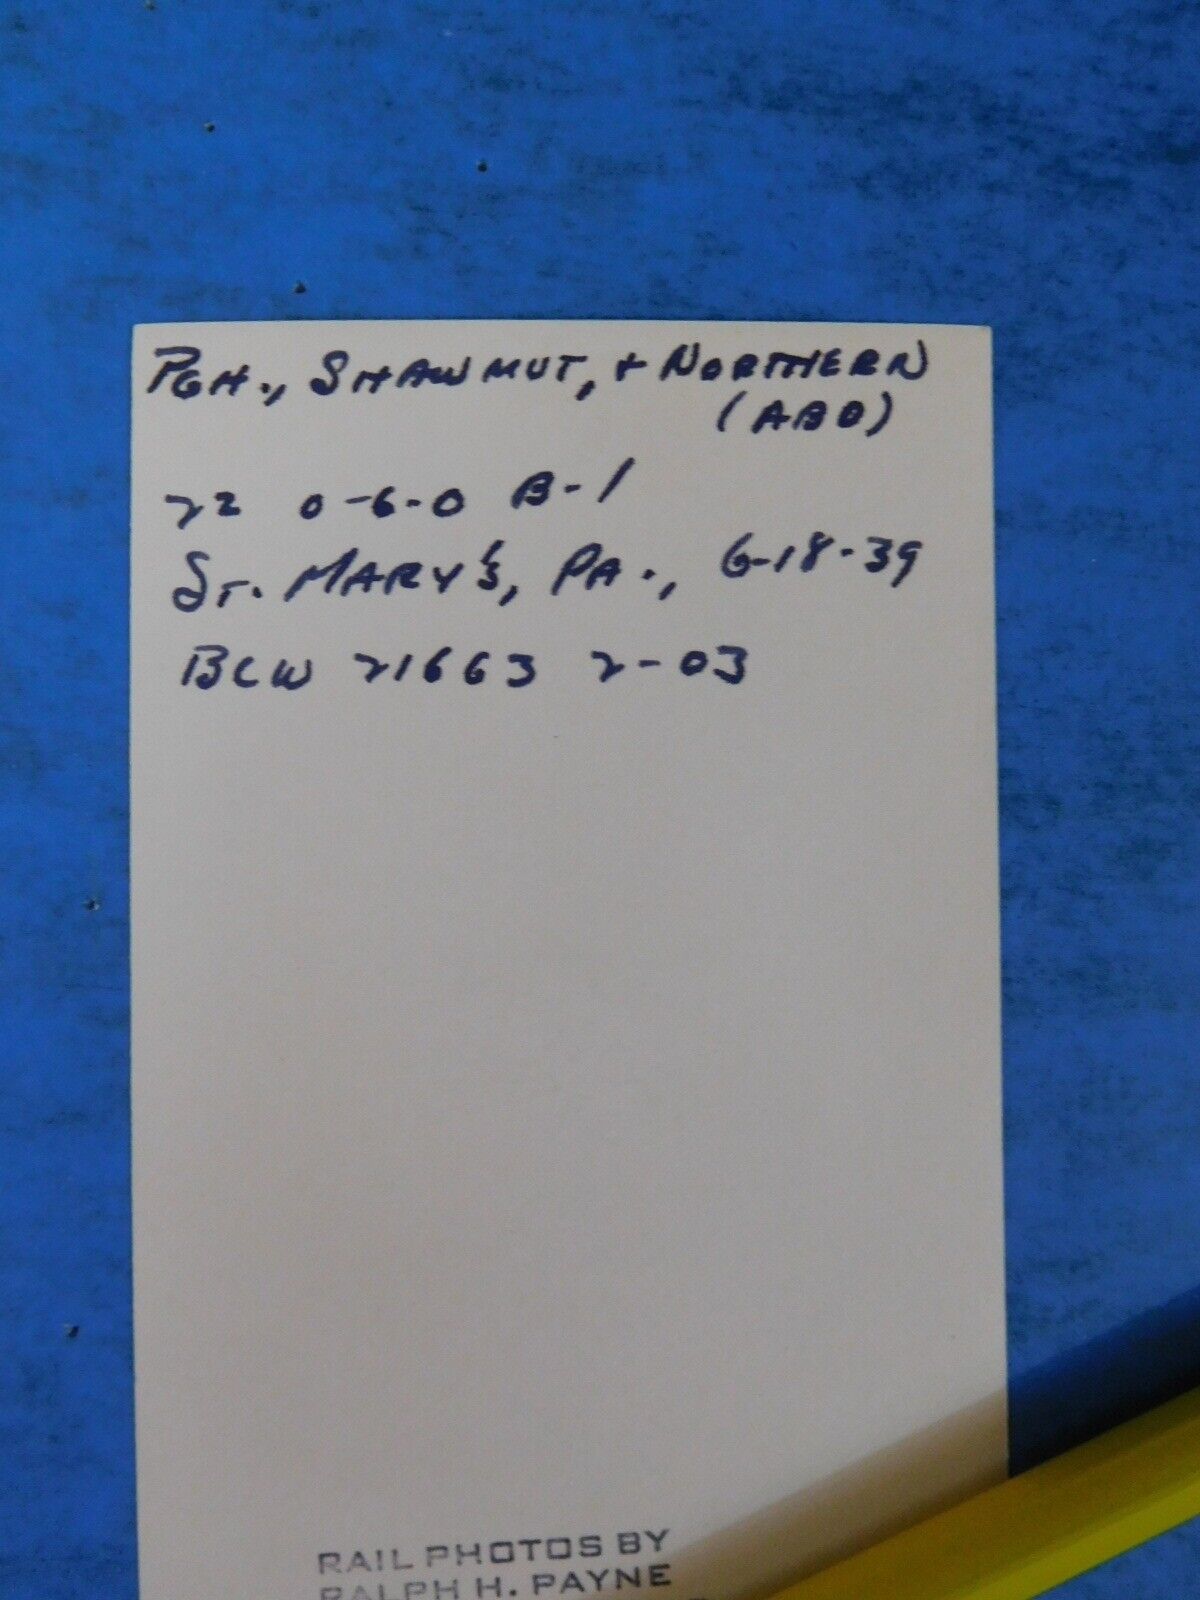 PGH., SHAWMUT, + NORTHERN
(ABD)
22 0-6-0 B-1
ST. MARY'S, PA., 6-18-39
BLW 21663 2-03
RAIL PHOTOS BY
RALPH H. PAYNE